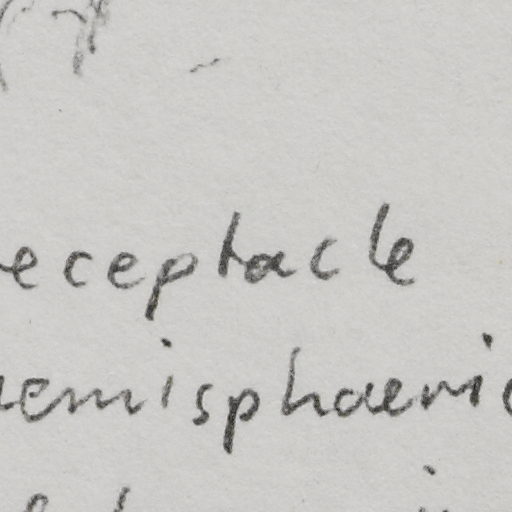 eceptacle
hemisphaeric